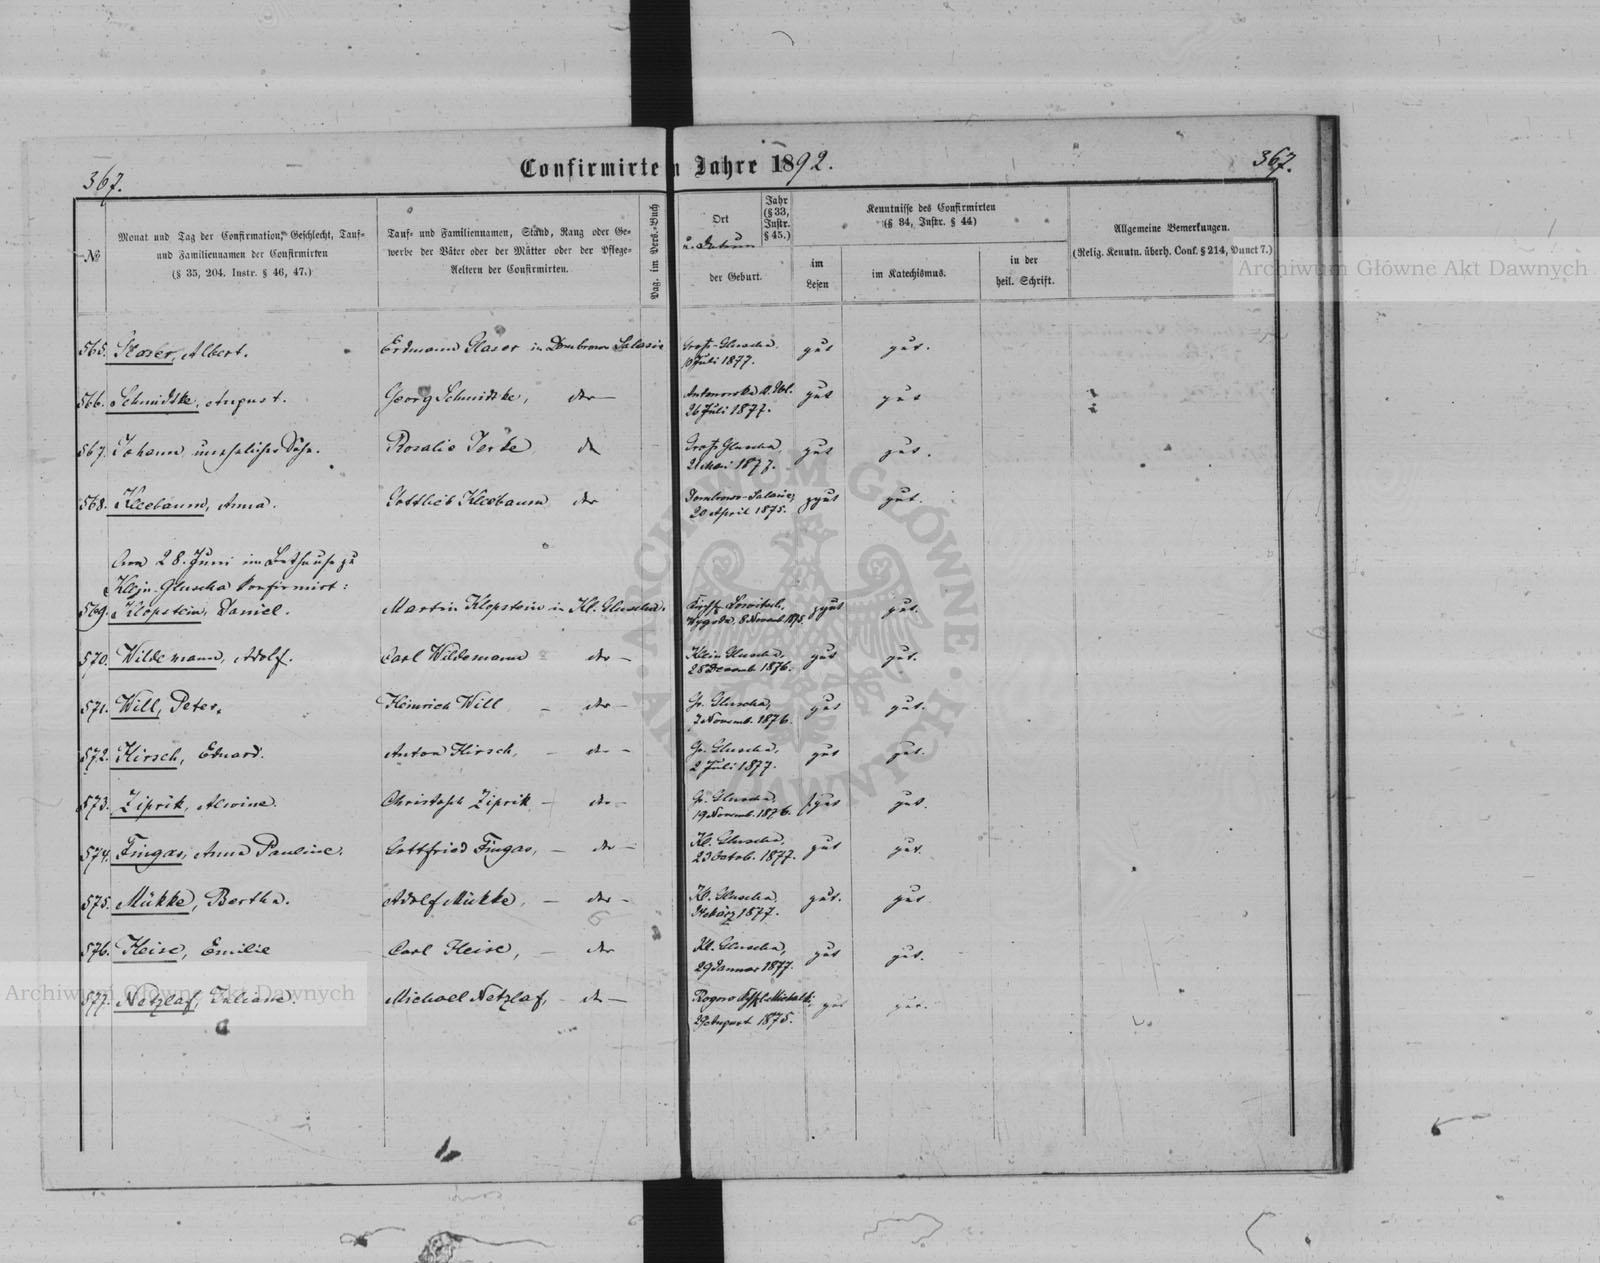 367.
Confirmirte n Jahre 1892.
367.
No
Monat und Tag der Confirmation, Geschlecht, Tauf-
und Familiennamen der Confirmirten
(§ 35, 204. Instr. § 46, 47.)
Tauf- und Familiennamen, Stand, Rang oder Ge-
werbe der Väter oder der Mütter oder der Pflege-
Aeltern der Confirmirten.
Pag. im Pers.-Buch
Ort
u. Datum
der Geburt.
Jahr
(§ 33,
Instr.
§ 45.)
Kenntnisse des Confirmirten
(§ 34, Instr. § 44)
im
Lesen
im Katechismus.
in der
heil. Schrift.
Allgemeine Bemerkungen.
(Relig. Kenntn. überh. Conf. § 214, Punct 7.)
Archiwum Główne Akt Dawnych
565. Glaser, Albert. Erdmann Glaser in Dombrowo Salasie Groß-Gluscha. gut gut.
Juli 1877.
566. Schmidtke, August. Georg Schmidtke, do — Antonowka gut gut
26 Juli 1877.
567. Johann unehelicher Sohn. Rosalie do Groß Gluscha, gut gut.
21 Mai 1877.
568. Kleebaum, Anna. Gottlieb Kleebaum do Dombrowo-Salasie, gut gut.
20 April 1875.
Am 28. Juni im Bethause zu
Klein-Gluscha konfirmirt:
569. Klopstein, Daniel. Martin Klopstein in Kl. Gluscha. gut gut.
Wygoda, 8 Novemb. 1875.
570. Wildemann, Adolf. Carl Wildemann do — Klein Gluscha, gut gut.
28 Decemb. 1876.
571. Will, Peter. Heinrich Will — do — Gr. Gluscha, gut gut.
7 Novemb. 1876.
572. Hirsch, Eduard. Anton Hirsch, — do — Gr. Gluscha, gut gut.
2 Juli 1877.
573. Ziprik, Alwine. Christoph Ziprik — do — Gr. Gluscha, gut gut.
19 Novemb. 1876.
574. Fingas, Anna Pauline. Gottfried Fingas, — do — Kl. Gluscha, gut gut.
23 Octob. 1877.
575. Mükke, Bertha. Adolf Mükke, — do — Kl. Gluscha, gut. gut
März 1877.
576. Heise, Emilie Carl Heise, — do Kl. Gluscha, gut gut.
29 Januar 1877.
577. Netzlaf, Juliane. Michael Netzlaf, — do — Rogowo gut gut.
29 August 1875.
Archiwum Główne Akt Dawnych
ARCHIWUM GŁÓWNE AKT DAWNYCH